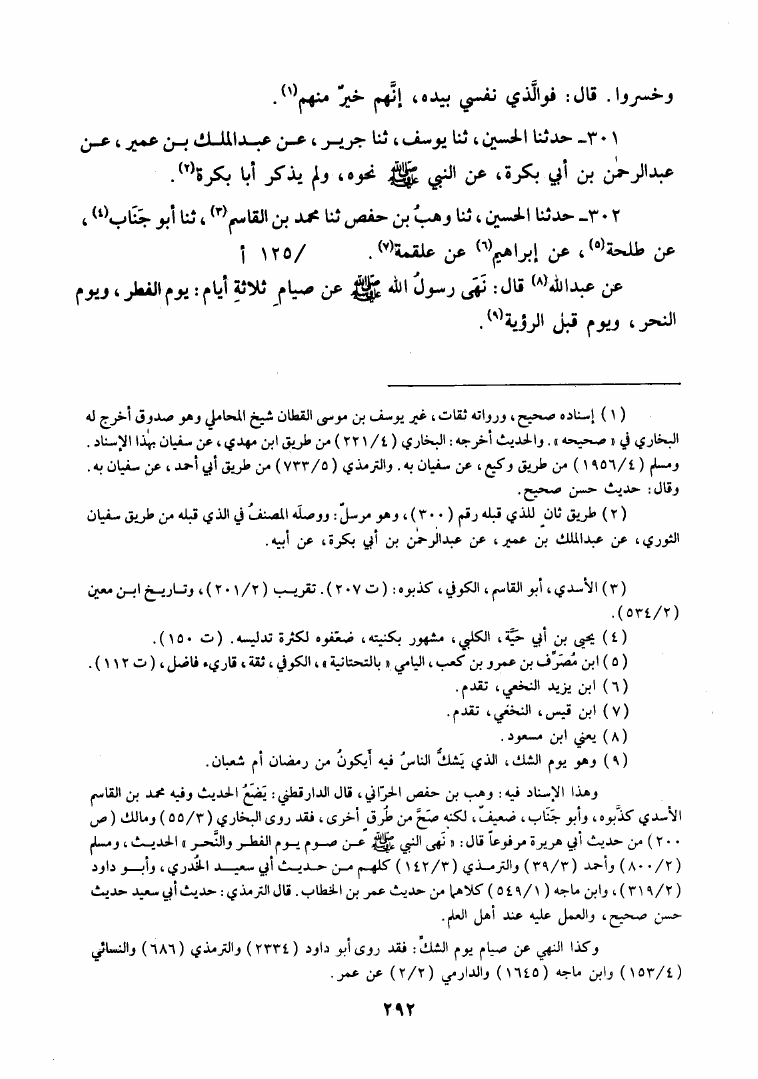 وخسروا. قال: فوالَّذي نفسي بيده، إنَّهم خيرٌ منهم(١).
٣٠١ـ حدثنا الحسين، ثنا يوسف، ثنا جرير، عـن عبـدالملـك بـن عمير، عـن
عبدالرحمٰن بن أبي بكرة، عن النبي ﷺ نحوه، ولم يذكر أبا بكرة(٢).
٣٠٢ـ حدثنا الحسين، ثنا وهبُ بن حفص ثنا محمد بن القاسم(٣)، ثنا أبو جَنَاب(٤)،
عن طلحة(٥)، عن إبراهيم(٦) عن علقمة(٧). /١٢٥ أ
عن عبدالله(٨) قال: نَهَى رسولُ الله ﷺ عن صيامِ ثلاثةِ أيام: يوم الفطر، ويوم
النحر، ويوم قبل الرؤية(٩).
(١) إسناده صحيح، ورواته ثقات، غير يوسف بن موسى القطان شيخ المحاملي وهو صدوق أخرج له
البخاري في «صحيحه». والحديث أخرجه: البخاري (٢٢١/٤) من طريق ابن مهدي، عن سفيان بهٰذا الإسناد.
ومسلم (١٩٥٦/٤) من طريق وكيع، عن سفيان به. والترمذي (٧٣٣/٥) من طريق أبي أحمد، عن سفيان به.
وقال: حديث حسن صحيح.
(٢) طريق ثانٍ للذي قبله رقم (٣٠٠)، وهو مرسلٌ: ووصلَه المصنفُ في الذي قبله من طريق سفيان
الثوري، عن عبدالملك بن عمير، عن عبدالرحمٰن بن أبي بكرة، عن أبيه.
(٣) الأسدي، أبو القاسم، الكوفي، كذبوه: (ت ٢٠٧). تقريـب (٢٠١/٢)، وتـاريـخ ابـن معين
(٥٣٤/٢).
(٤) يحيى بن أبي حَيَّة، الكلبي، مشهور بكنيته، ضعّفوه لكثرة تدليسه. (ت ١٥٠).
(٥) ابن مُصَرِّف بن عمرو بن كعب، اليامي «بالتحتانية»، الكوفي، ثقة، قاريء فاضل، (ت ١١٢).
(٦) ابن يزيد النخعي، تقدم.
(٧) ابن قيس، النخعي، تقدم.
(٨) يعني ابن مسعود.
(٩) وهو يوم الشك، الذي يَشكُّ الناسُ فيه أيكونُ من رمضان أم شعبان.
وهذا الإسناد فيه: وهب بن حفص الحرّاني، قال الدارقطني: يَضَعُ الحديث وفيه محمد بن القاسم
الأسدي كذَّبوه، وأبو جَنَاب، ضعيفٌ، لكنه صَحَّ من طُرقٍ أخرى، فقد روى البخاري (٥٥/٣) ومالك (ص
٢٠٠) من حديث أبي هريرة مرفوعاً قال: «نَهى النبي ﷺ عـن صـوم يـوم الفطـر والنَّحـر» الحديث، ومسلم
(٨٠٠/٢) وأحمد (٣٩/٣) والترمـذي (١٤٢/٣) كلهـم مـن حـديـث أبي سعيـد الخُدري، وأبـو داود
(٣١٩/٢)، وابن ماجه (٥٤٩/١) كلاهما من حديث عمر بن الخطاب. قال الترمذي: حديث أبي سعيد حديث
حسن صحيح، والعمل عليه عند أهل العلم.
وكذا النهي عن صيام يوم الشكِّ: فقد روى أبو داود (٢٣٣٤) والترمذي (٦٨٦) والنسائي
(١٥٣/٤) وابن ماجه (١٦٤٥) والدارمي (٢/٢) عن عمر.
٢٩٢